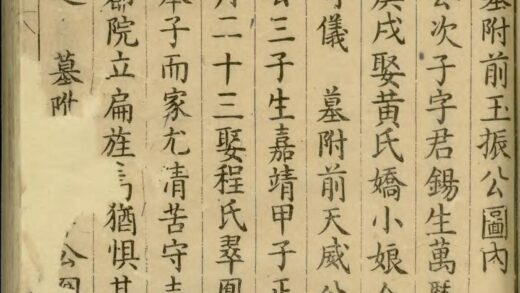 墓附前玉振公圖內
公次子字君錫生萬曆
庚戌娶黃氏嬌小娘
儀 墓附前天威
公三子生嘉靖甲子正
月二十三娶程氏翠鳳
子而家尤清苦守
院立扁旌 猶惧其
墓附 公圖